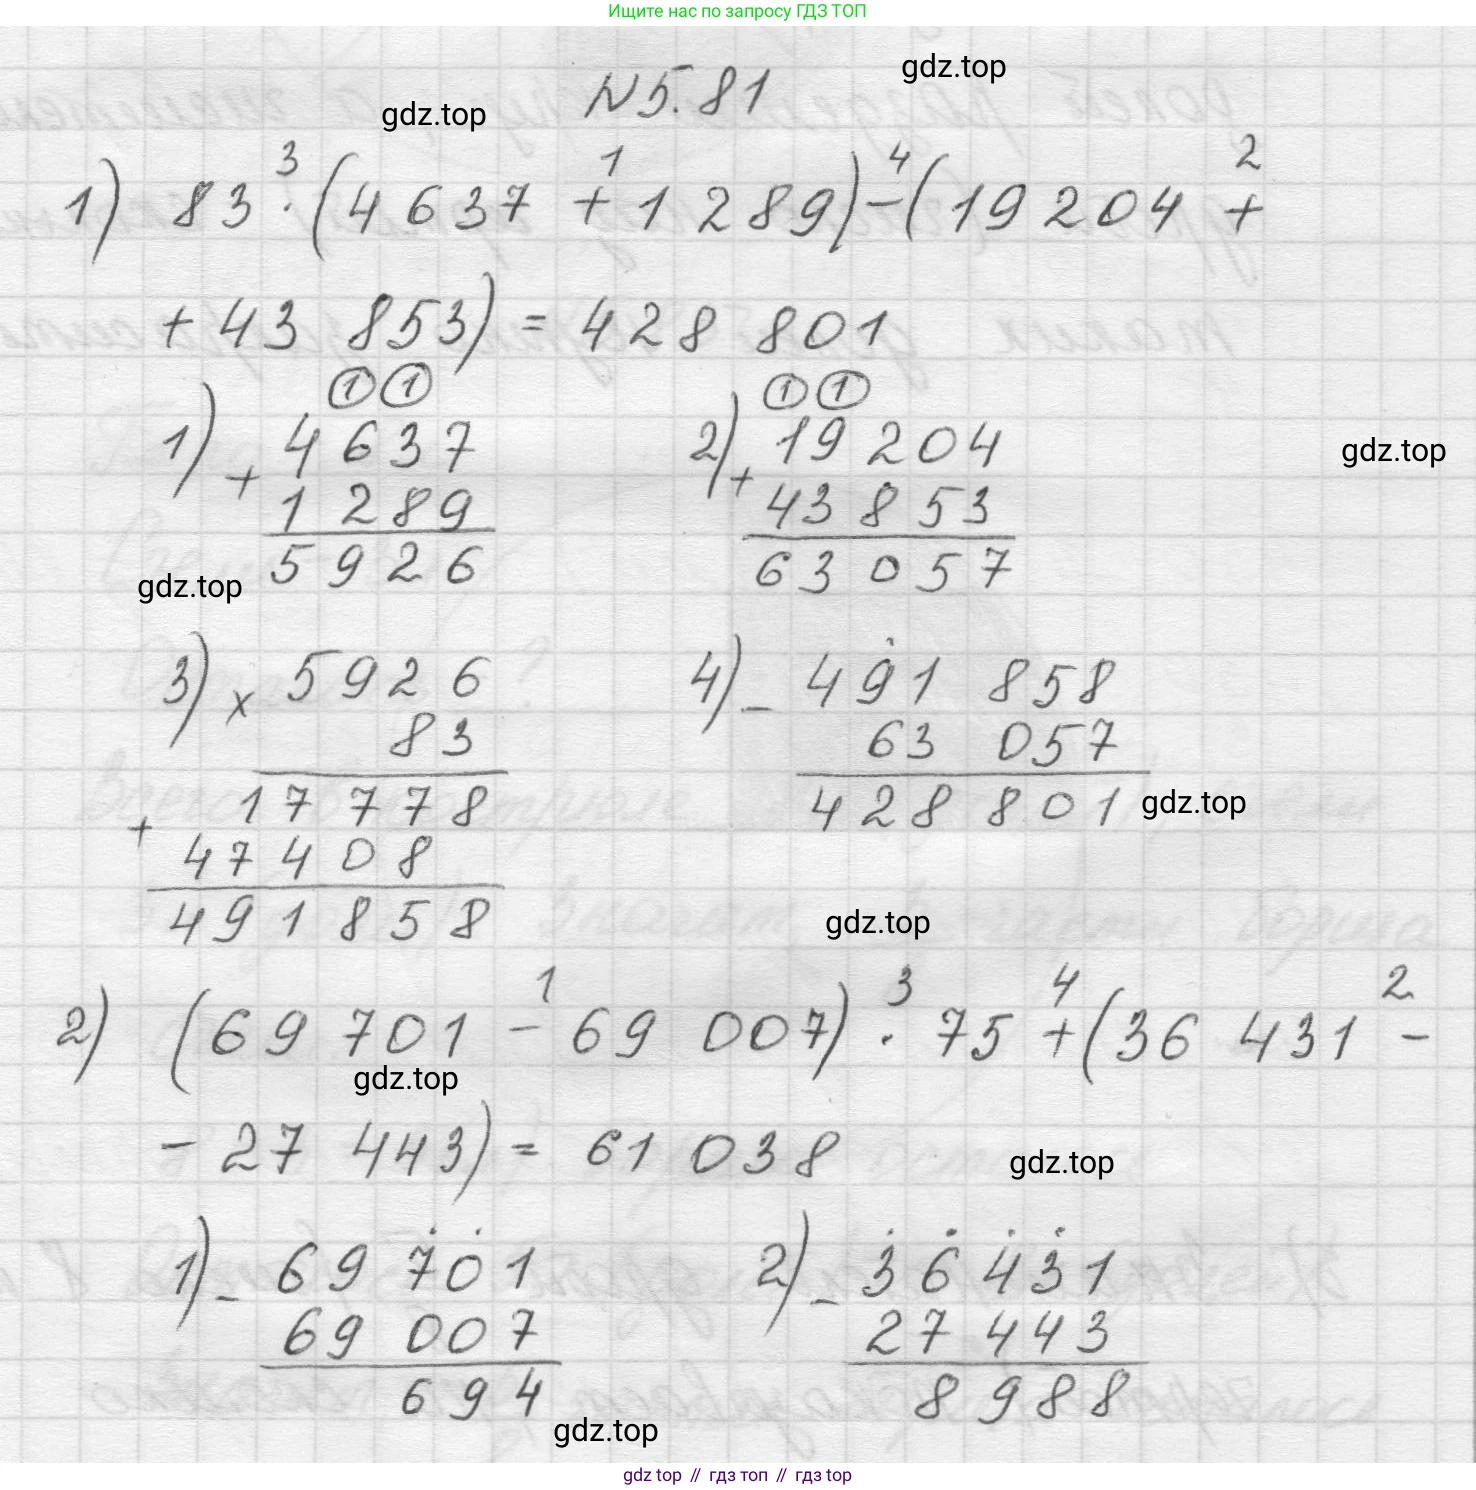 Ищите нас по запросу ГДЗ ТОП
gdz.top
gdz.top
N 5.81
3 1 4 2
1) 83 · (4 637 + 1 289) - (19 204 +
+ 43 853) = 428 801
1 1
1) + 4 637
1 289
5 926
1 1
2) + 19 204
43 853
63 057
gdz.top
gdz.top
3) x 5926
83
17 778
+
47 408
491 858
4) - 491 858
63 057
428 801
gdz.top
gdz.top
1 3 4 2
2) (69 701 - 69 007) · 75 + (36 431 -
gdz.top
- 27 443) = 61 038
gdz.top
1) - 69 701
69 007
694
2) - 36 431
27 443
8 988
gdz.top
gdz top // гдз топ // гдз top